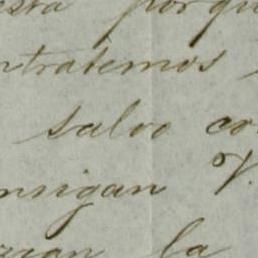 esta porqu
ntratemos
salvo co
nsigan V.
la